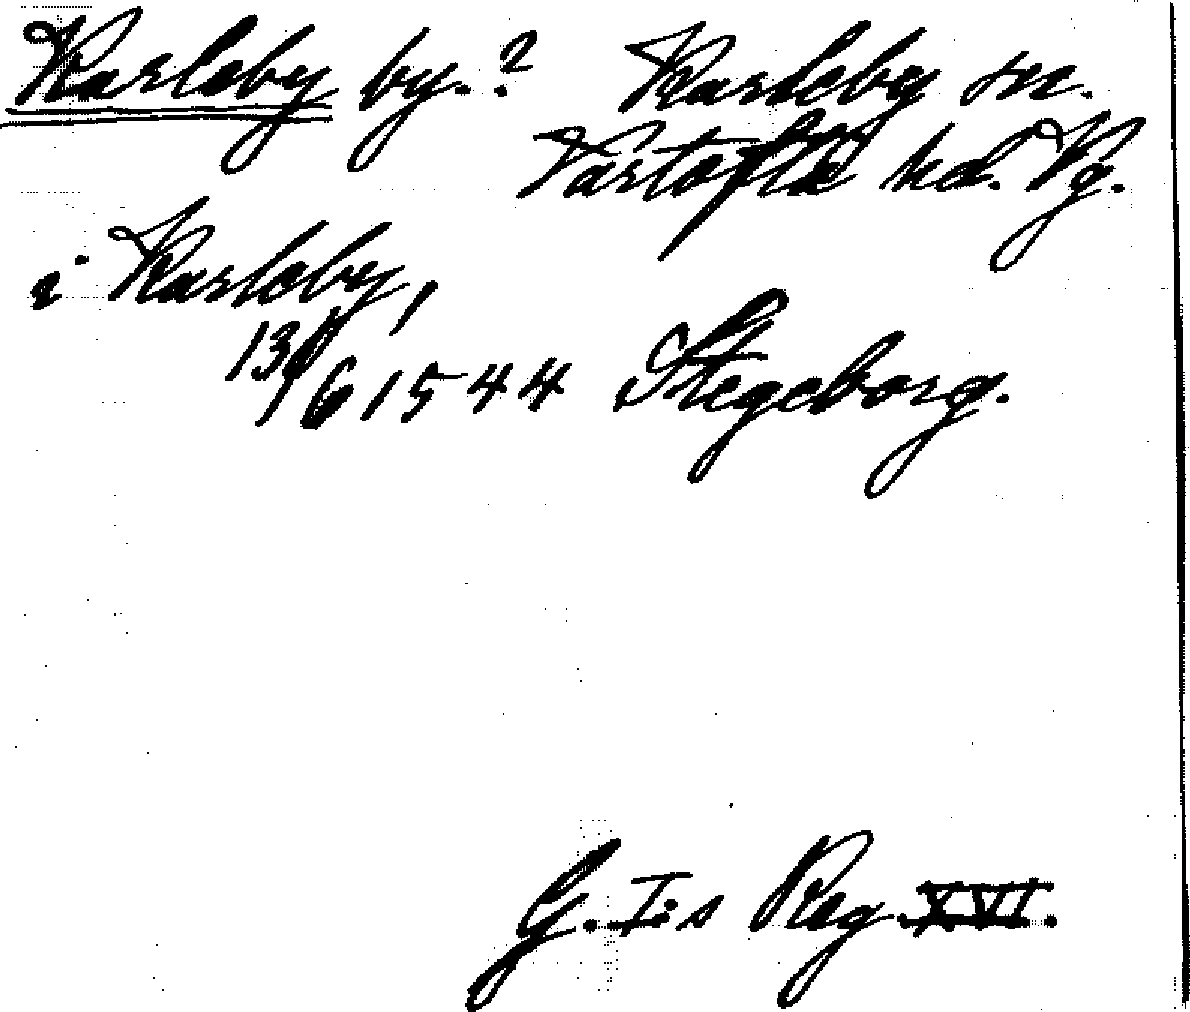 Karleby by.? Karleby sn.
Vartofta hd. Vg.
i Karleby,
13/6 1544 Stegeborg.
G. I:s Reg. XVI.